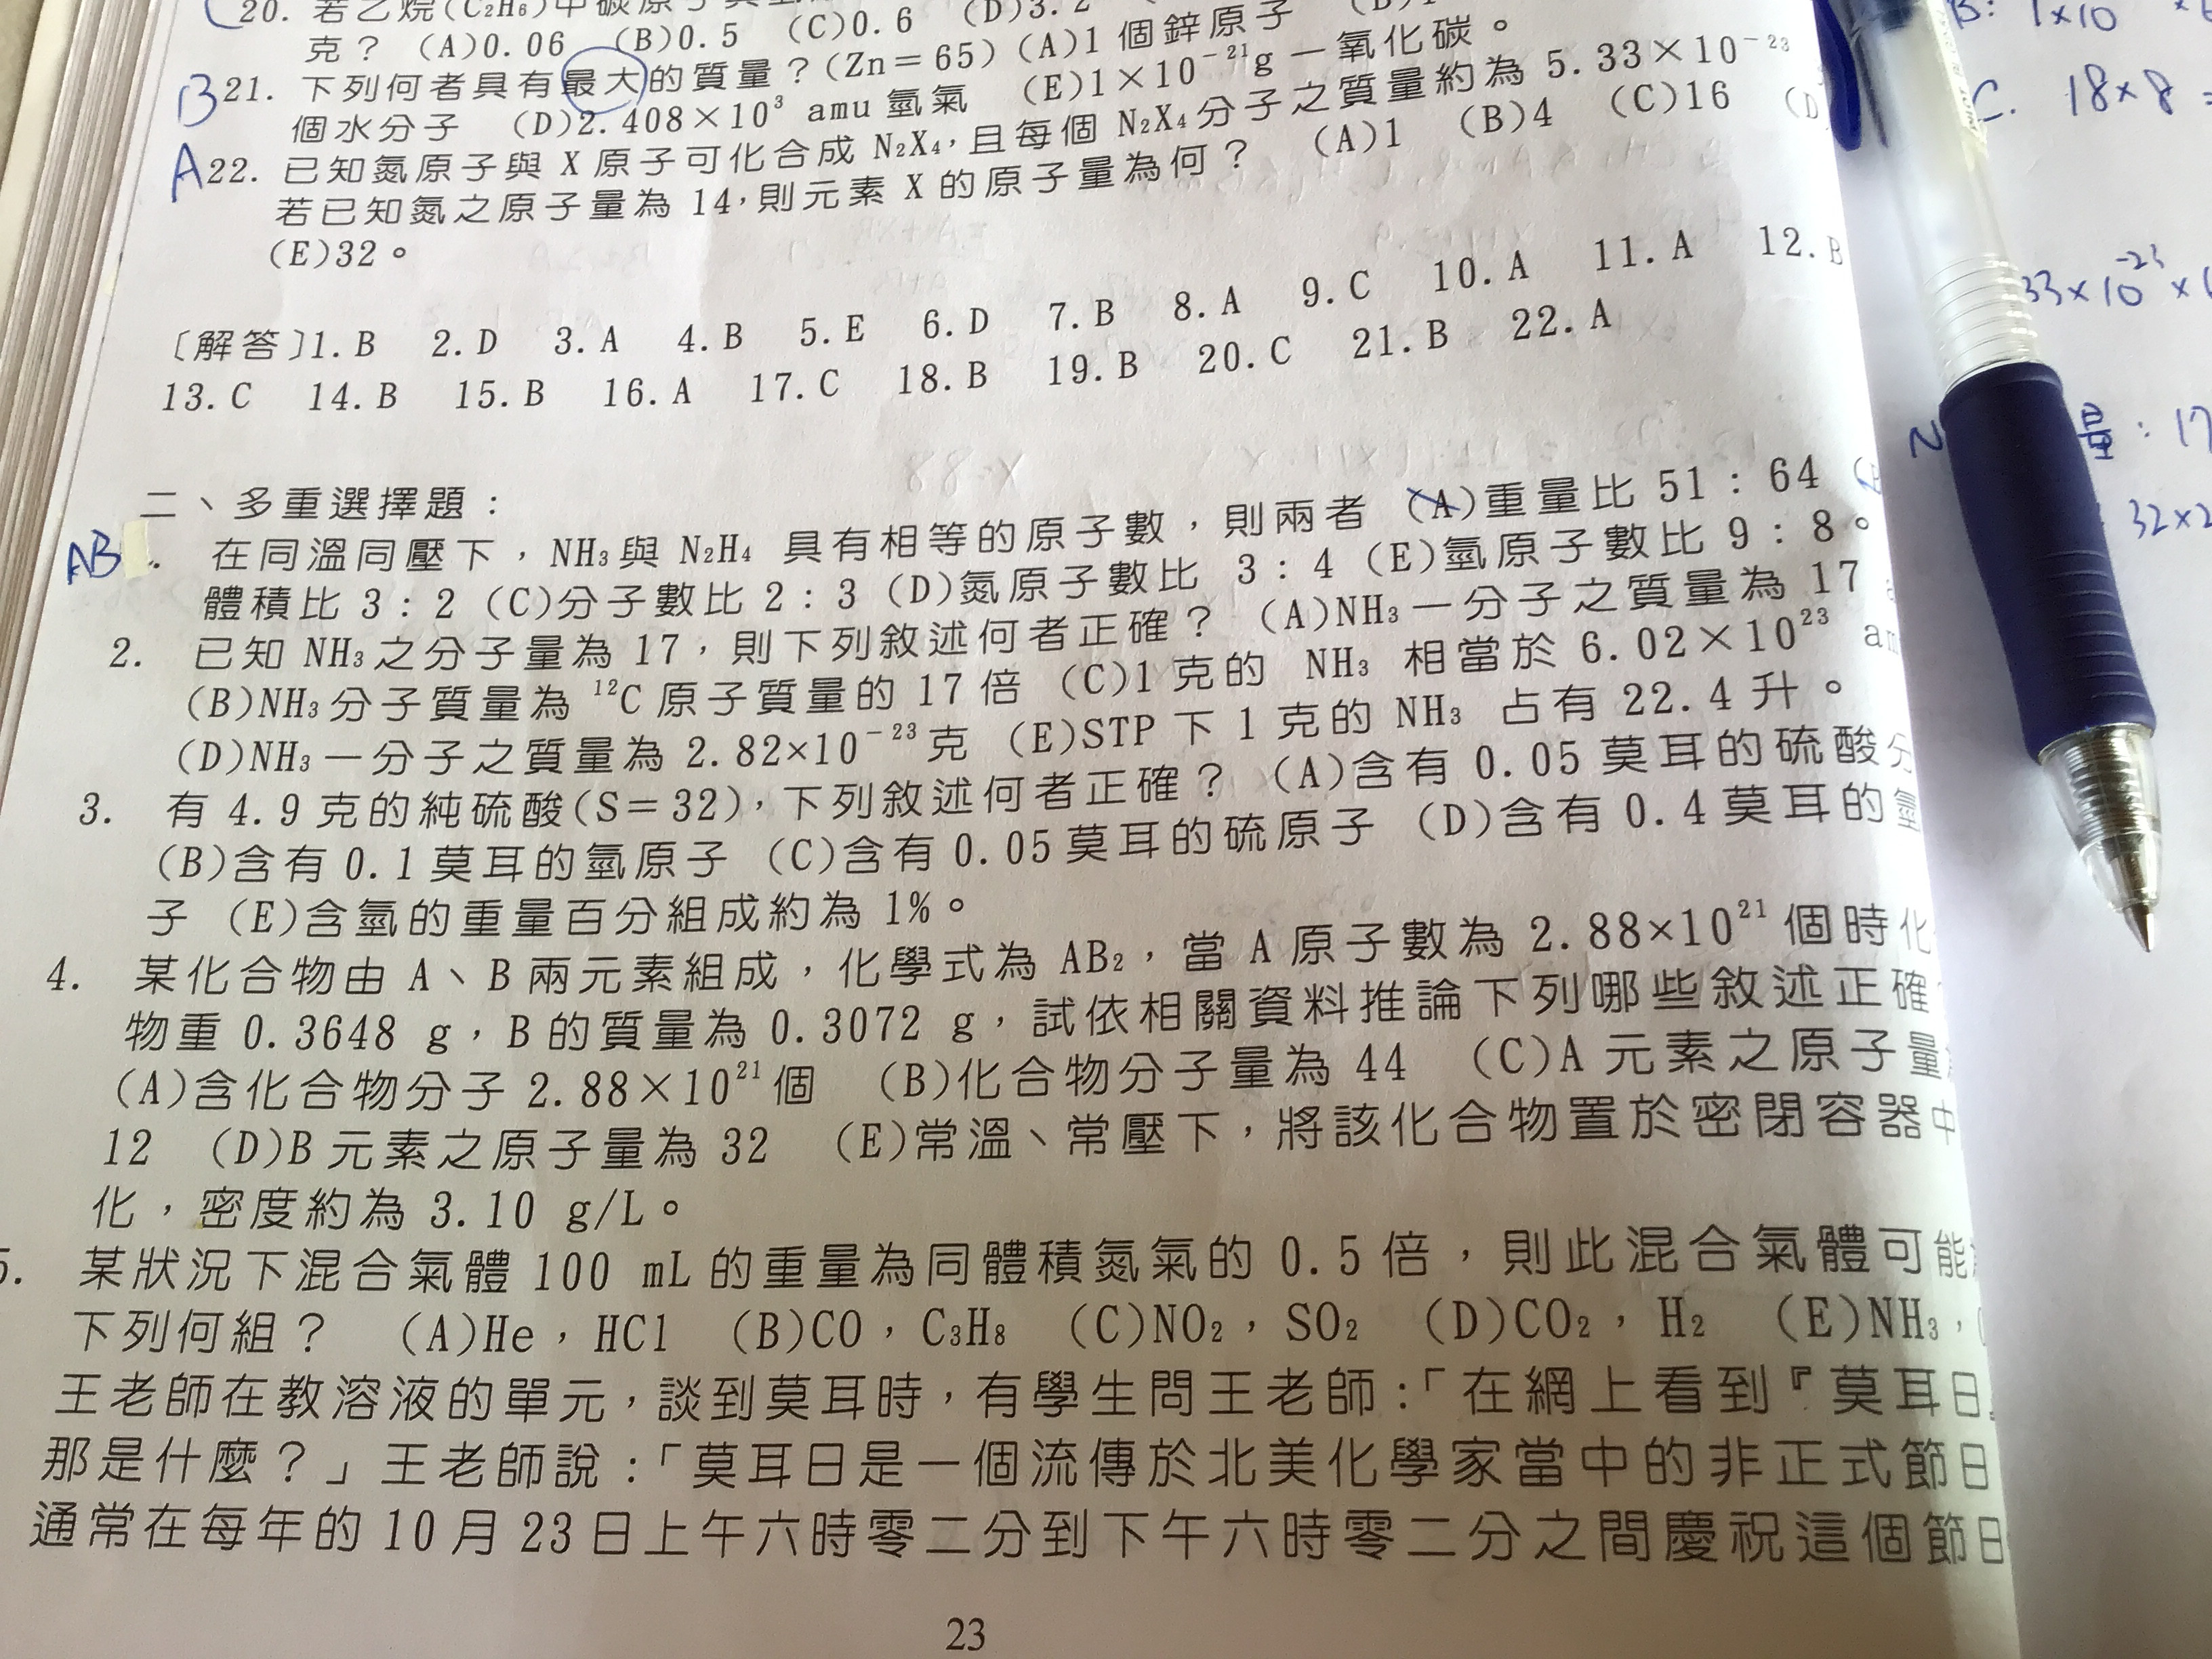 20. 若乙烷(C₂H₆)中碳原子
克？ (A)0.06 (B)0.5 (C)0.6 (D)3.2
B 21. 下列何者具有最大的質量？(Zn＝65) (A)1 個鋅原子
個水分子 (D)2.408×10³ amu 氫氣 (E)1×10⁻²¹g 一氧化碳。
A 22. 已知氮原子與 X 原子可化合成 N₂X₄，且每個 N₂X₄分子之質量約為 5.33×10⁻²³
若已知氮之原子量為 14，則元素 X 的原子量為何？ (A)1 (B)4 (C)16 (D
(E)32。
〔解答〕1.B 2.D 3.A 4.B 5.E 6.D 7.B 8.A 9.C 10.A 11.A 12.B
13.C 14.B 15.B 16.A 17.C 18.B 19.B 20.C 21.B 22.A
二、多重選擇題：
AB . 在同溫同壓下，NH₃與 N₂H₄ 具有相等的原子數，則兩者 (A)重量比 51：64
體積比 3：2 (C)分子數比 2：3 (D)氮原子數比 3：4 (E)氫原子數比 9：8。
2. 已知 NH₃之分子量為 17，則下列敘述何者正確？ (A)NH₃一分子之質量為 17
(B)NH₃分子質量為 ¹²C 原子質量的 17 倍 (C)1 克的 NH₃ 相當於 6.02×10²³ am
(D)NH₃一分子之質量為 2.82×10⁻²³克 (E)STP 下 1 克的 NH₃ 占有 22.4 升。
3. 有 4.9 克的純硫酸(S＝32)，下列敘述何者正確？ (A)含有 0.05 莫耳的硫酸分
(B)含有 0.1 莫耳的氫原子 (C)含有 0.05 莫耳的硫原子 (D)含有 0.4 莫耳的氫
子 (E)含氫的重量百分組成約為 1%。
4. 某化合物由 A、B 兩元素組成，化學式為 AB₂，當 A 原子數為 2.88×10²¹ 個時化
物重 0.3648 g，B 的質量為 0.3072 g，試依相關資料推論下列哪些敘述正確
(A)含化合物分子 2.88×10²¹個 (B)化合物分子量為 44 (C)A 元素之原子量
12 (D)B 元素之原子量為 32 (E)常溫、常壓下，將該化合物置於密閉容器中
化，密度約為 3.10 g/L。
5. 某狀況下混合氣體 100 mL 的重量為同體積氮氣的 0.5 倍，則此混合氣體可能
下列何組？ (A)He，HCl (B)CO，C₃H₈ (C)NO₂，SO₂ (D)CO₂，H₂ (E)NH₃，
王老師在教溶液的單元，談到莫耳時，有學生問王老師：「在網上看到『莫耳日』
那是什麼？」王老師說：「莫耳日是一個流傳於北美化學家當中的非正式節日
通常在每年的 10 月 23 日上午六時零二分到下午六時零二分之間慶祝這個節日
23
B: 1×10
C. 18×8
33×10⁻²³×
N 量：17
32×2